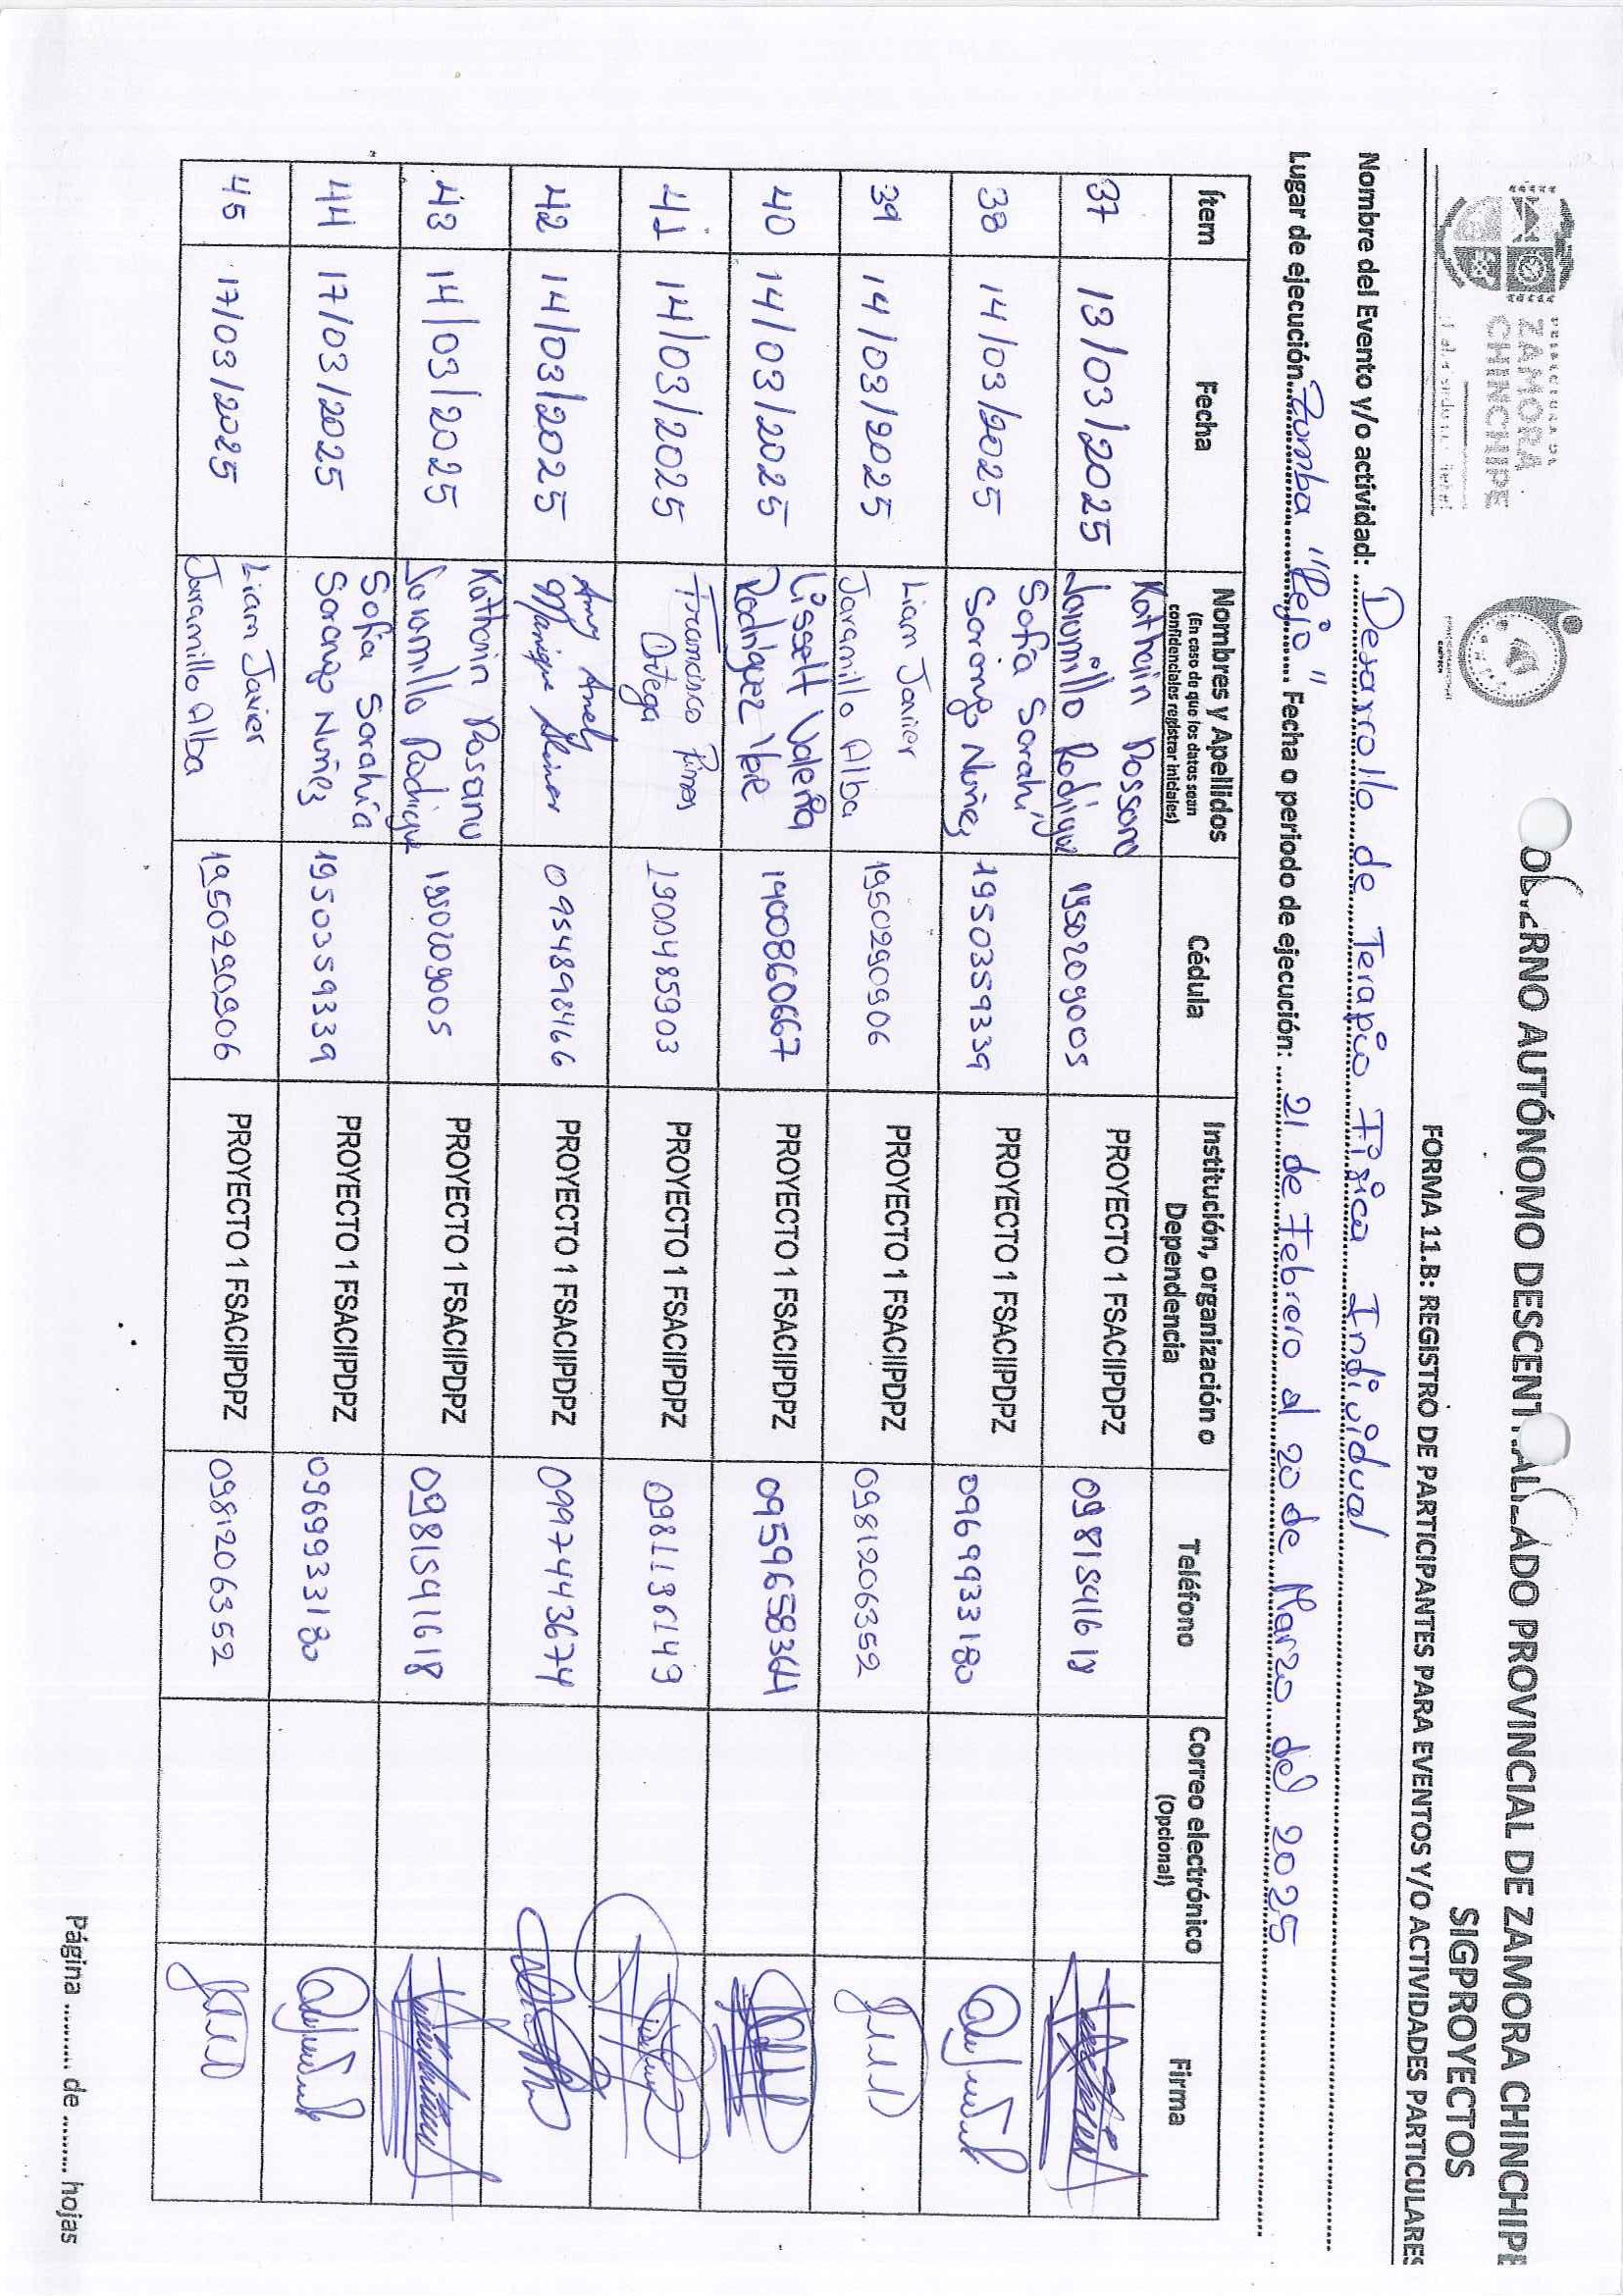 PREFECTURA DE
ZAMORA
CHINCHIPE
GOBIERNO AUTÓNOMO DESCENTRALIZADO PROVINCIAL DE ZAMORA CHINCHIPE
SIGPROYECTOS
FORMA 11.B: REGISTRO DE PARTICIPANTES PARA EVENTOS Y/O ACTIVIDADES PARTICULARES
Nombre del Evento y/o actividad: Desarrollo de Terapia Física Individual
Lugar de ejecución: Zumba "Rejo" Fecha o periodo de ejecución: 21 de Febrero al 20 de Marzo del 2025
Ítem Fecha Nombres y Apellidos (En caso de que los datos sean confidenciales registrar iniciales) Cédula Institución, organización o Dependencia Teléfono Correo electrónico (Opcional) Firma
37 13/03/2025 Kathrin Rossana Jaramillo Rodrigue 1950209005 PROYECTO 1 FSACIIPDPZ 0981591618
38 14/03/2025 Sofía Sarahi Sarango Nuñez 1950359339 PROYECTO 1 FSACIIPDPZ 0969933180
39 14/03/2025 Liam Javier Jaramillo Alba 1950290906 PROYECTO 1 FSACIIPDPZ 0981206352
40 14/03/2025 Lissett Valeria Rodriguez 1900860667 PROYECTO 1 FSACIIPDPZ 0959658364
41 14/03/2025 Francisco Ortega 1900485903 PROYECTO 1 FSACIIPDPZ 0981136149
42 14/03/2025 Amy Anely Manrique PROYECTO 1 FSACIIPDPZ 0997443674
43 14/03/2025 Kathrin Rosana Jaramillo Rodrigue 1950209005 PROYECTO 1 FSACIIPDPZ 0981591618
44 17/03/2025 Sofía Sarahía Sarango Nuñez 1950359339 PROYECTO 1 FSACIIPDPZ 0969933180
45 17/03/2025 Liam Javier Jaramillo Alba 1950290906 PROYECTO 1 FSACIIPDPZ 0981206352
Página ......... de ........ hojas